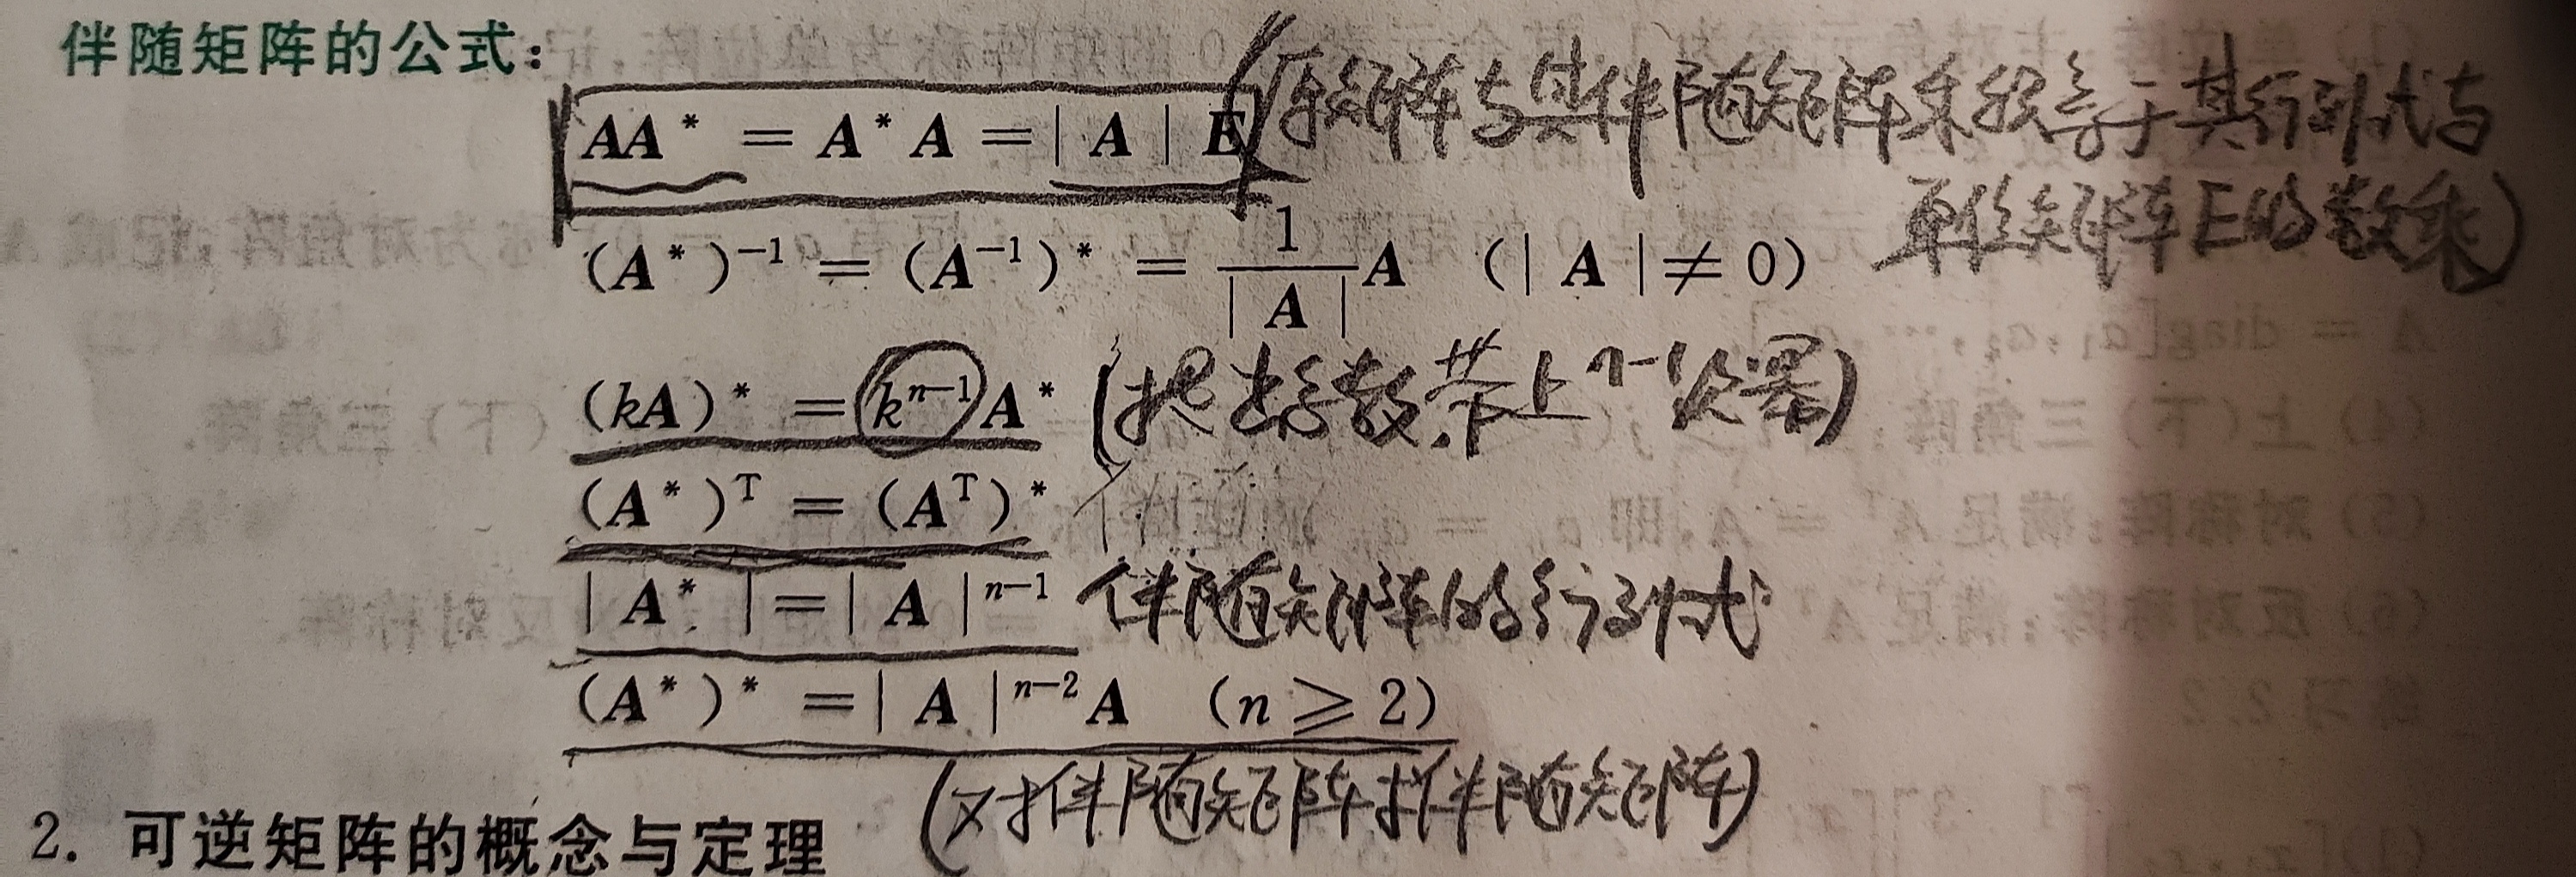 伴随矩阵的公式：
AA* = A*A = |A|E (原矩阵与其伴随矩阵乘积等于其行列式与
单位矩阵E的数乘)
(A*)⁻¹ = (A⁻¹)* = 1/|A| A (|A| ≠ 0)
(kA)* = kⁿ⁻¹A* (把 数带上n-1次幂)
(A*)ᵀ = (Aᵀ)*
|A*| = |A|ⁿ⁻¹ 伴随矩阵的行列式
(A*)* = |A|ⁿ⁻²A (n ≥ 2)
(对伴随矩阵求伴随矩阵)
2. 可逆矩阵的概念与定理